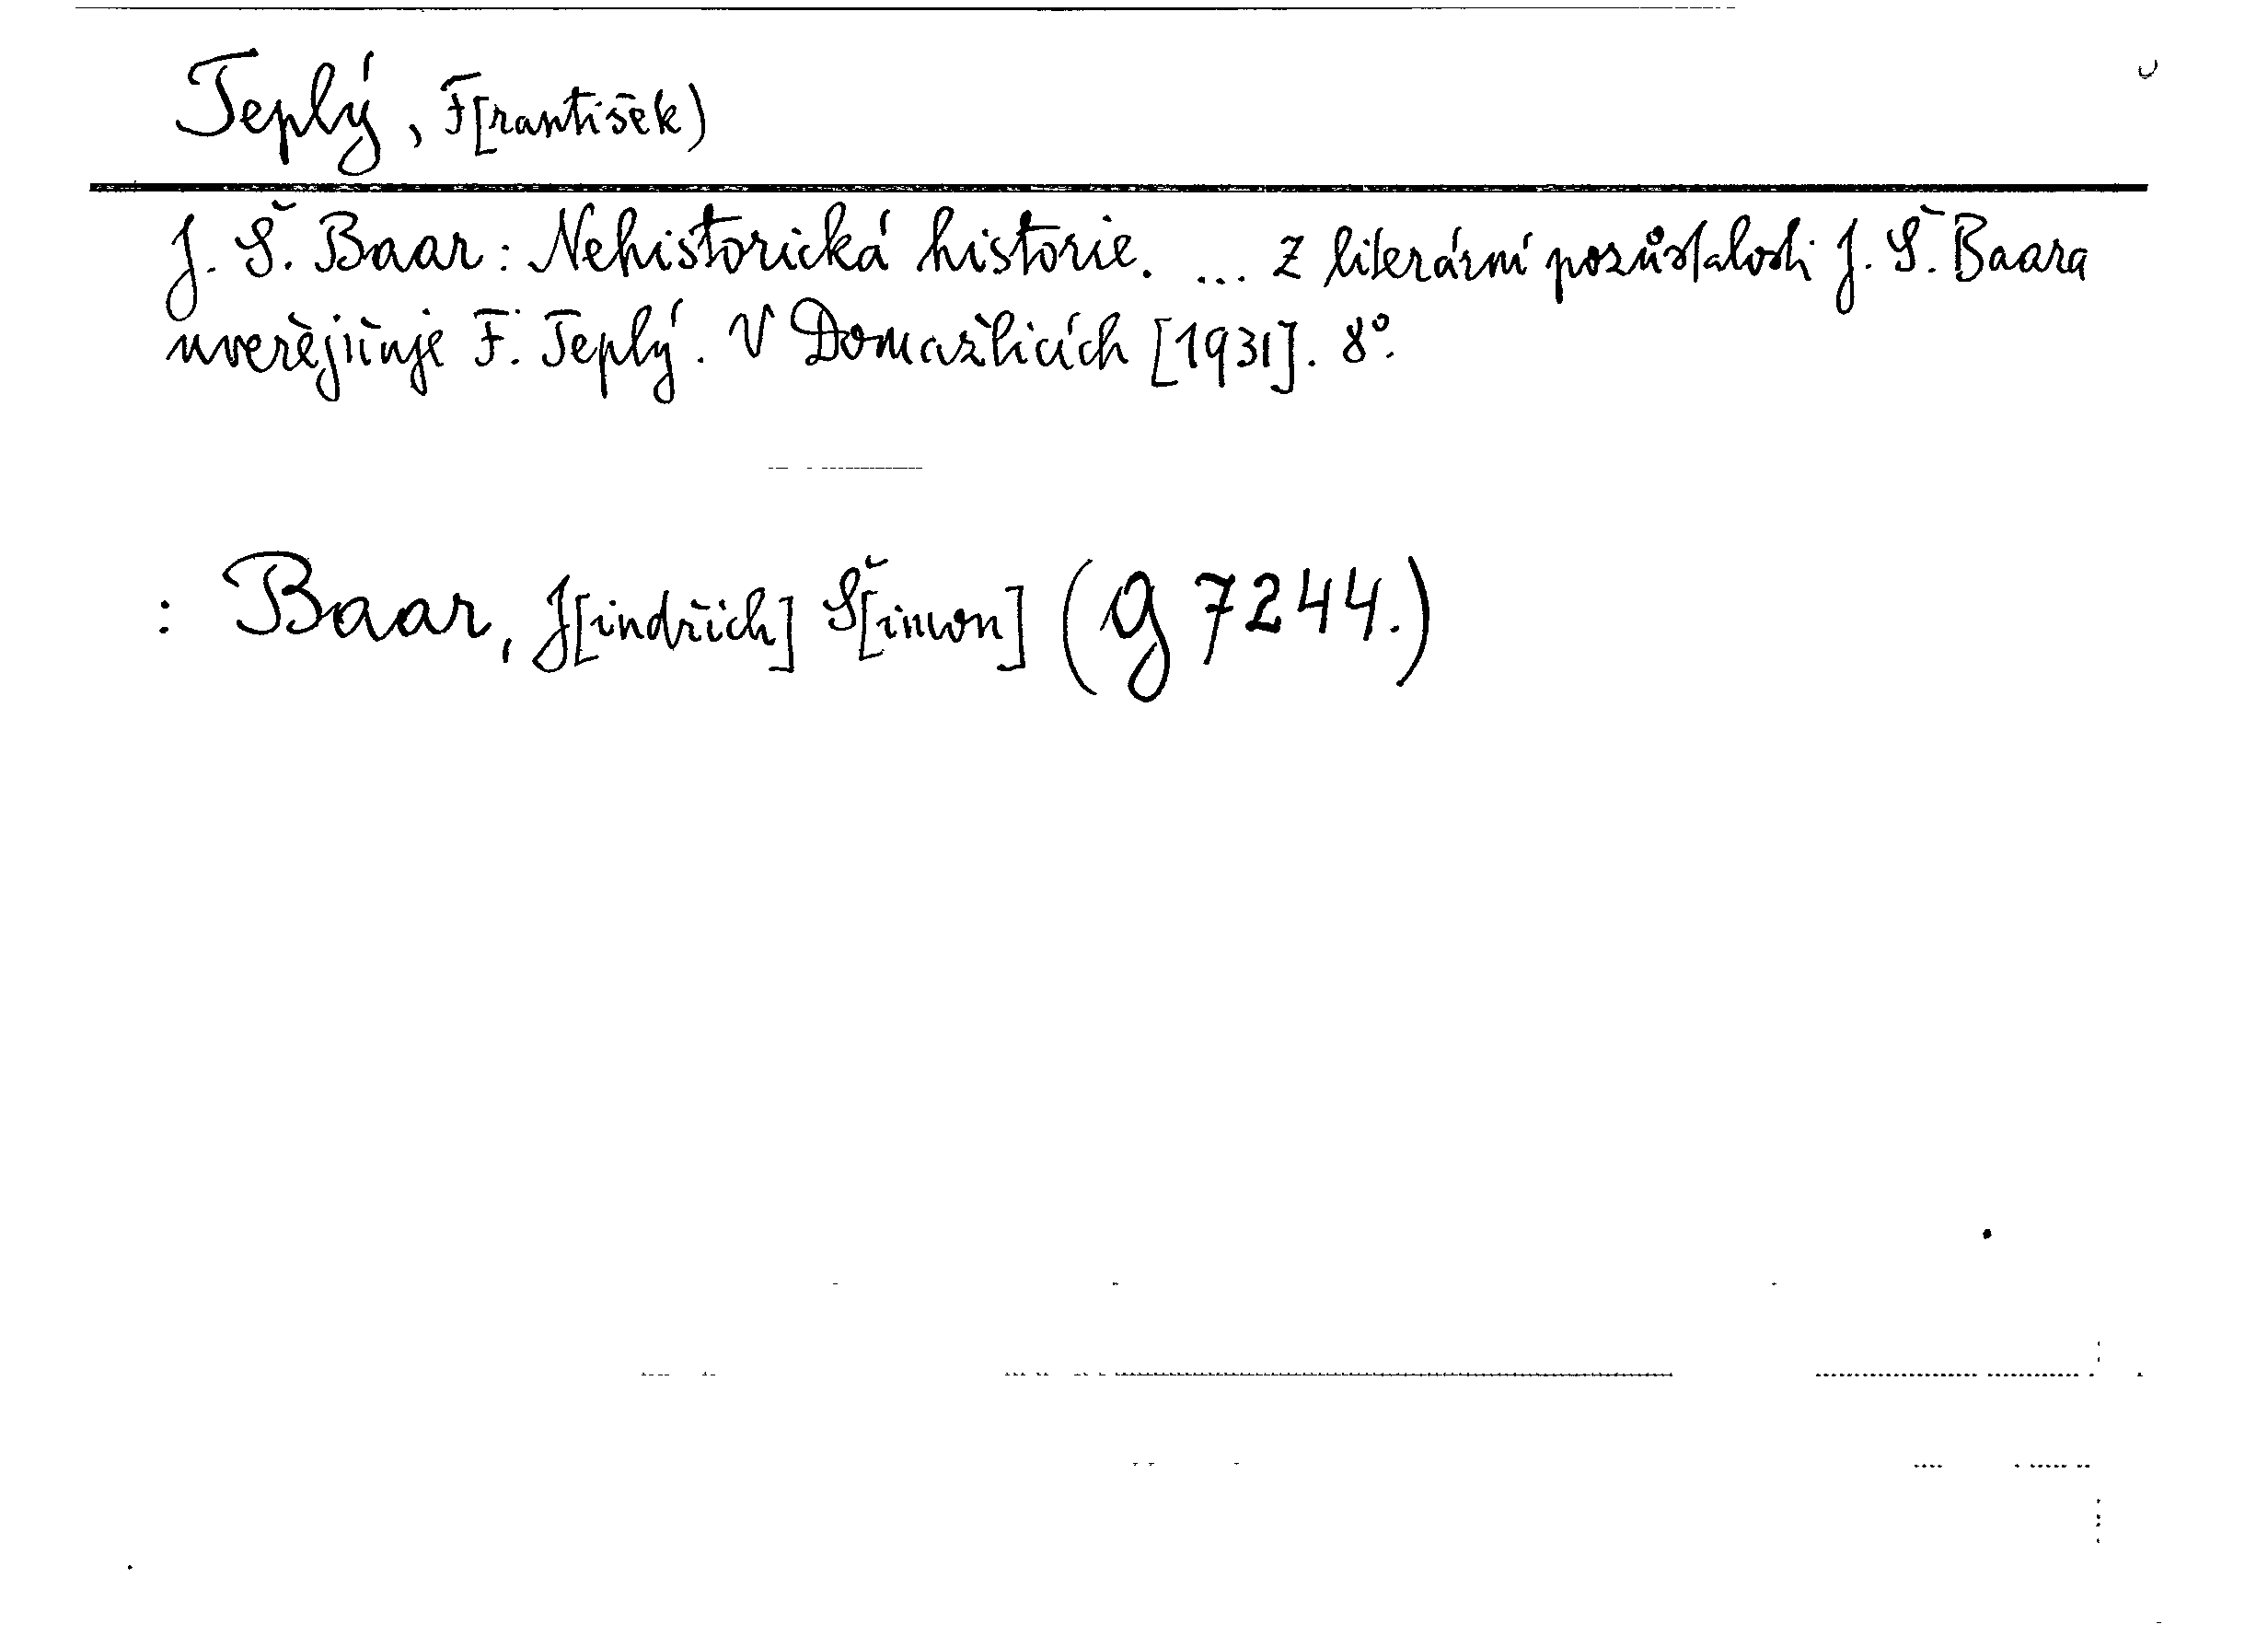 Teplý, F[rantišek)
J. Š. Baar: Nehistorická historie. ... Z literární pozůstalosti J. Š. Baara
uveřejňuje F. Teplý. V Domažlicích [1931]. 8°.
: Baar, J[indřich] Š[imon] (g 7244.)